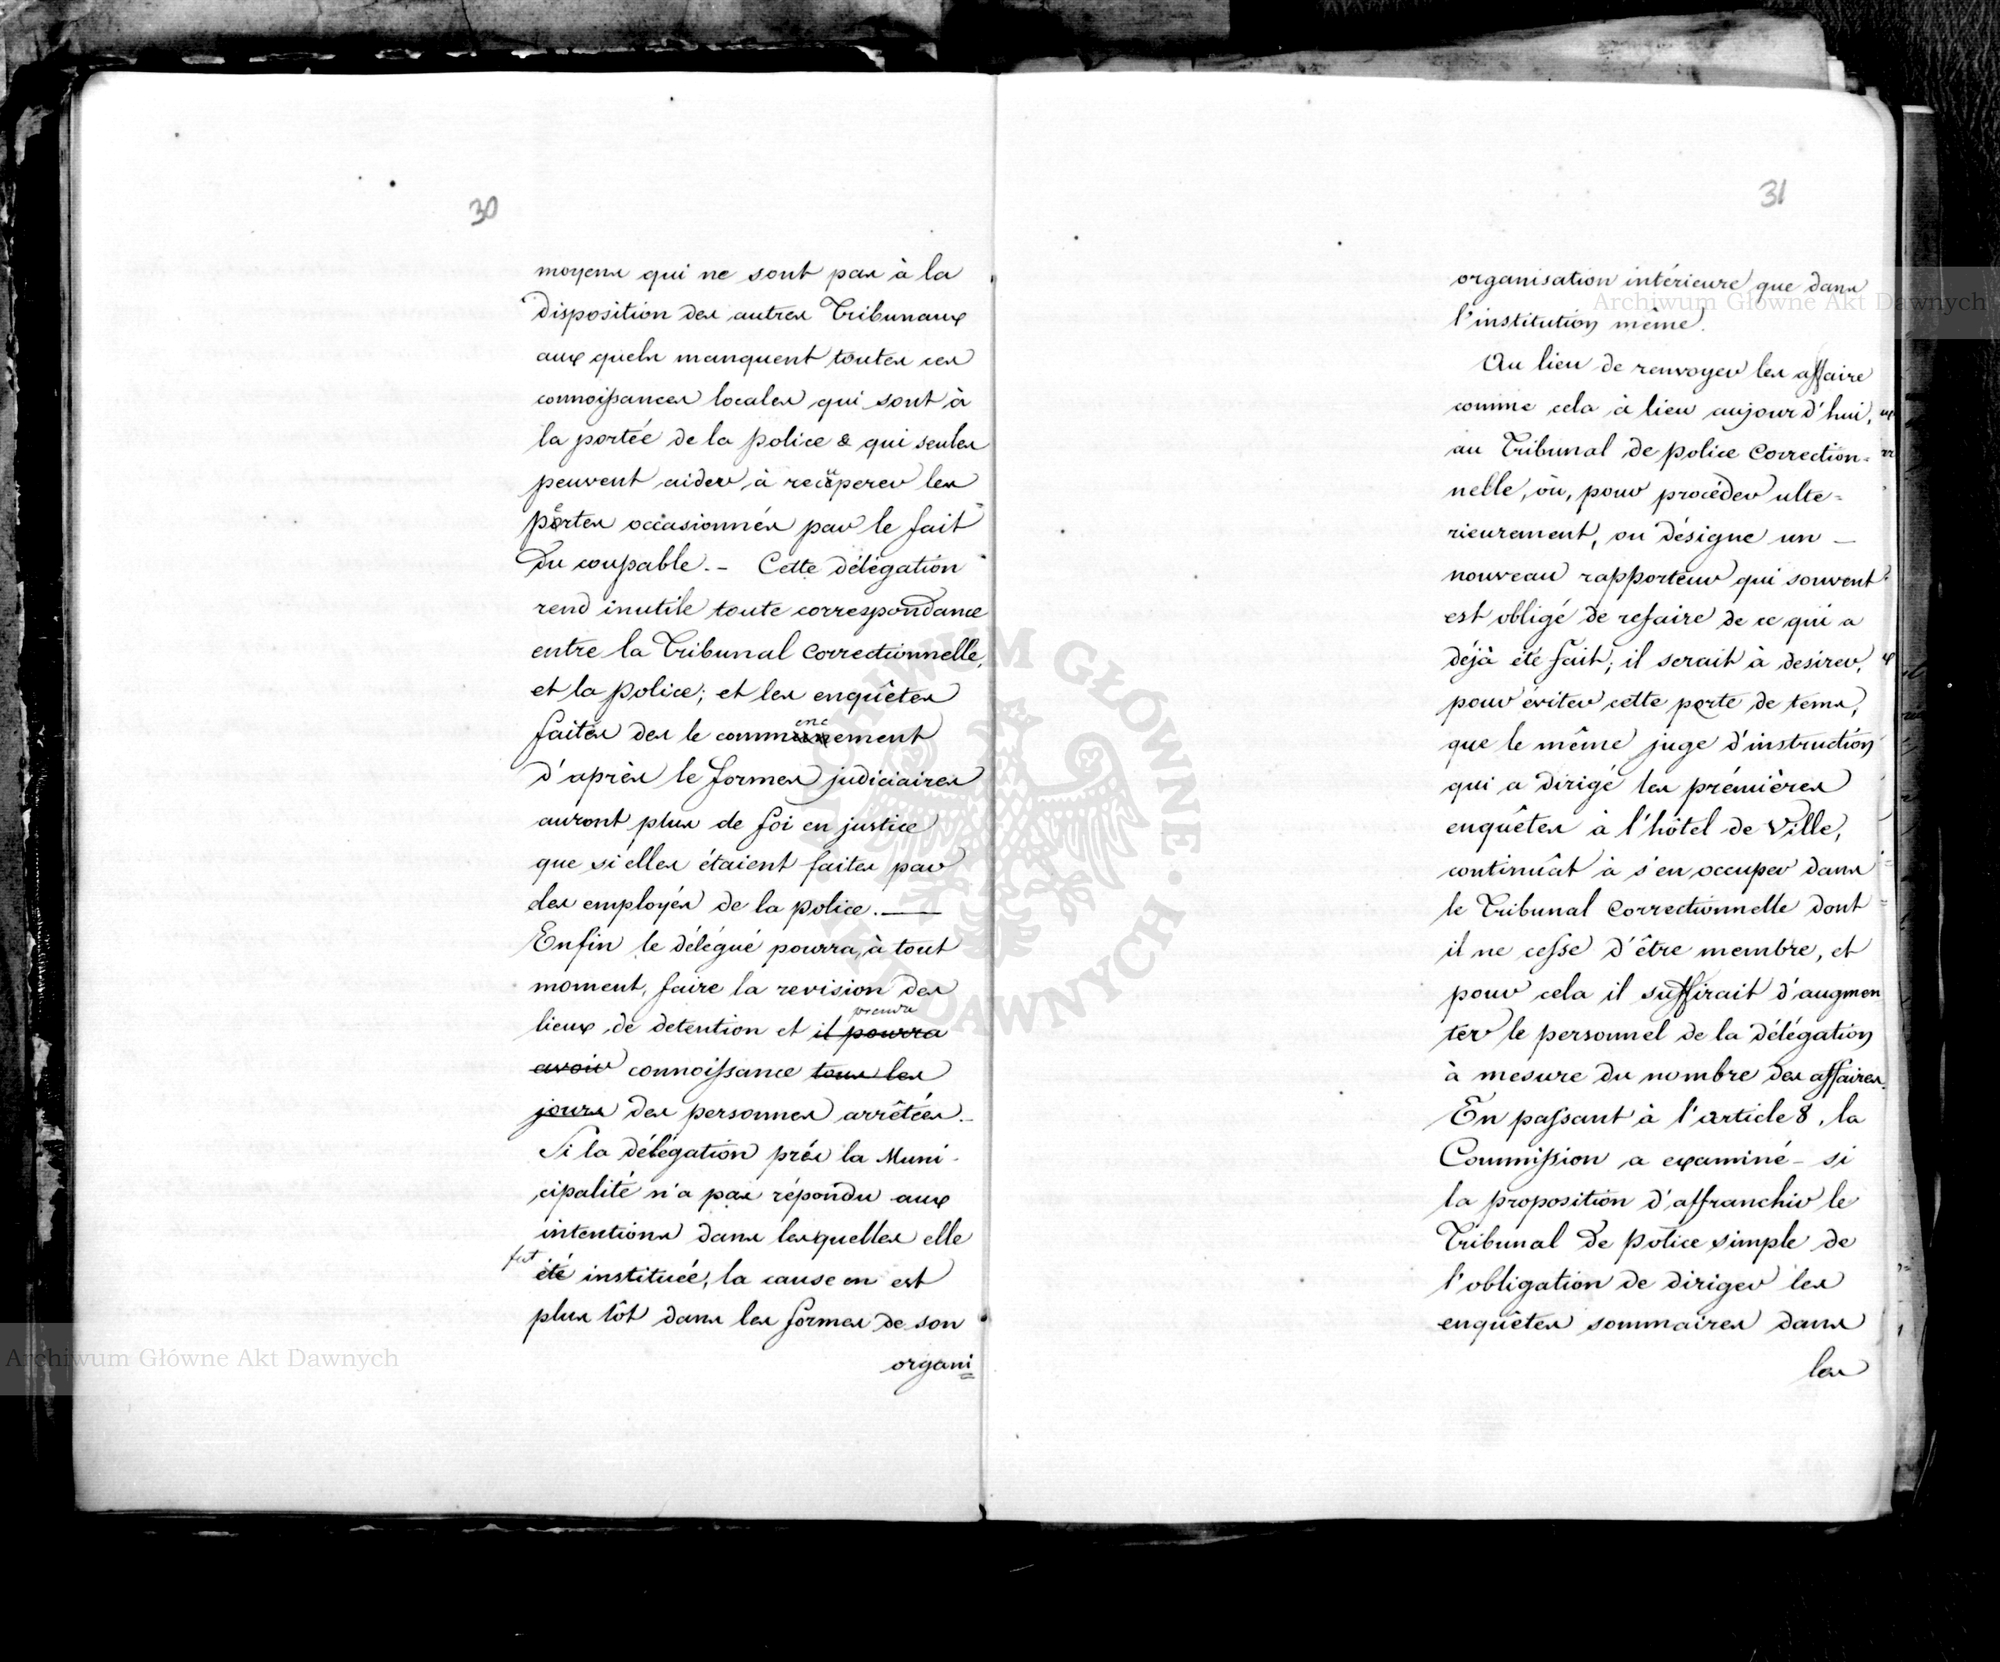 30
moyens qui ne sont pas à la
disposition des autres Tribunaux
aux quels manquent toutes ces
connoissances locales qui sont à
la portée de la police & qui seules
peuvent aider à recuperer les
pertes occasionnés par le fait
du coupable. - Cette délégation
rend inutile toute correspondance
entre la Tribunal Correctionnelle,
et la police; et les enquêtes
enc
faites des le commencement
d'après le formes judiciaires
auront plus de foi en justice
que si elles étaient faites par
des employés de la police. —
Enfin le délégué pourra, à tout
moment, faire la revision des
prendre
lieux de detention et il pourra
avoir connoissance tous les
jours des personnes arrêtées. -
Si la délégation près la Muni-
cipalité n'a pas répondu aux
intentions dans lesquelles elle
fut
été instituée, la cause en est
plus tôt dans les formes de son
organi=
31
organisation intérieure que dans
l'institution même.
Au lieu de renvoyer les affaire
comme cela à lieu aujour d'hui,
au Tribunal de police Correction=
nelle, où, pour procéder ulte=
rieurement, on désigne un —
nouveau rapporteur qui souvent
est obligé de refaire de ce qui a
déjà été fait; il serait à desirer,
pour éviter cette perte de tems,
que le même juge d'instruction
qui a dirigé les prémières
enquêtes à l'hôtel de Ville,
continuât à s'en occuper dans
le Tribunal Correctionnelle dont
il ne cesse d'être membre, et
pour cela il suffirait d'augmen
ter le personnel de la délégation
à mesure du nombre des affaires.
En passant à l'article 8, la
Commission a examiné - si
la proposition d'affranchir le
Tribunal de police simple de
l'obligation de diriger les
enquêtes sommaires dans
les
Archiwum Główne Akt Dawnych
Archiwum Główne Akt Dawnych
ARCHIWUM GŁÓWNE AKT DAWNYCH